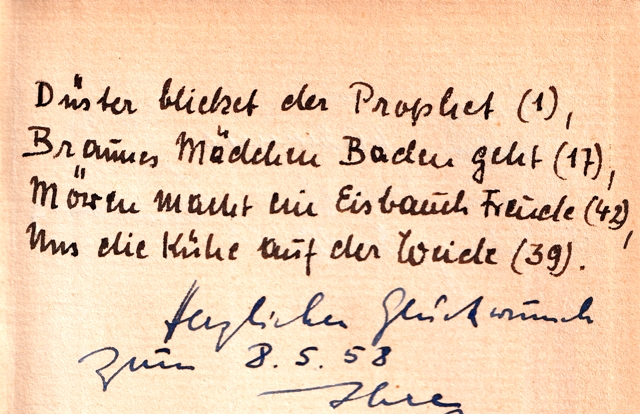 Düster blicket der Prophet (1),
Braunes Mädchen Baden geht (17),
Möwen macht ein Eisbauch Freude (42),
Uns die Kühe auf der Weide (39).
Herzlichen Glückwunsch
zum 8.5.58
Ihre